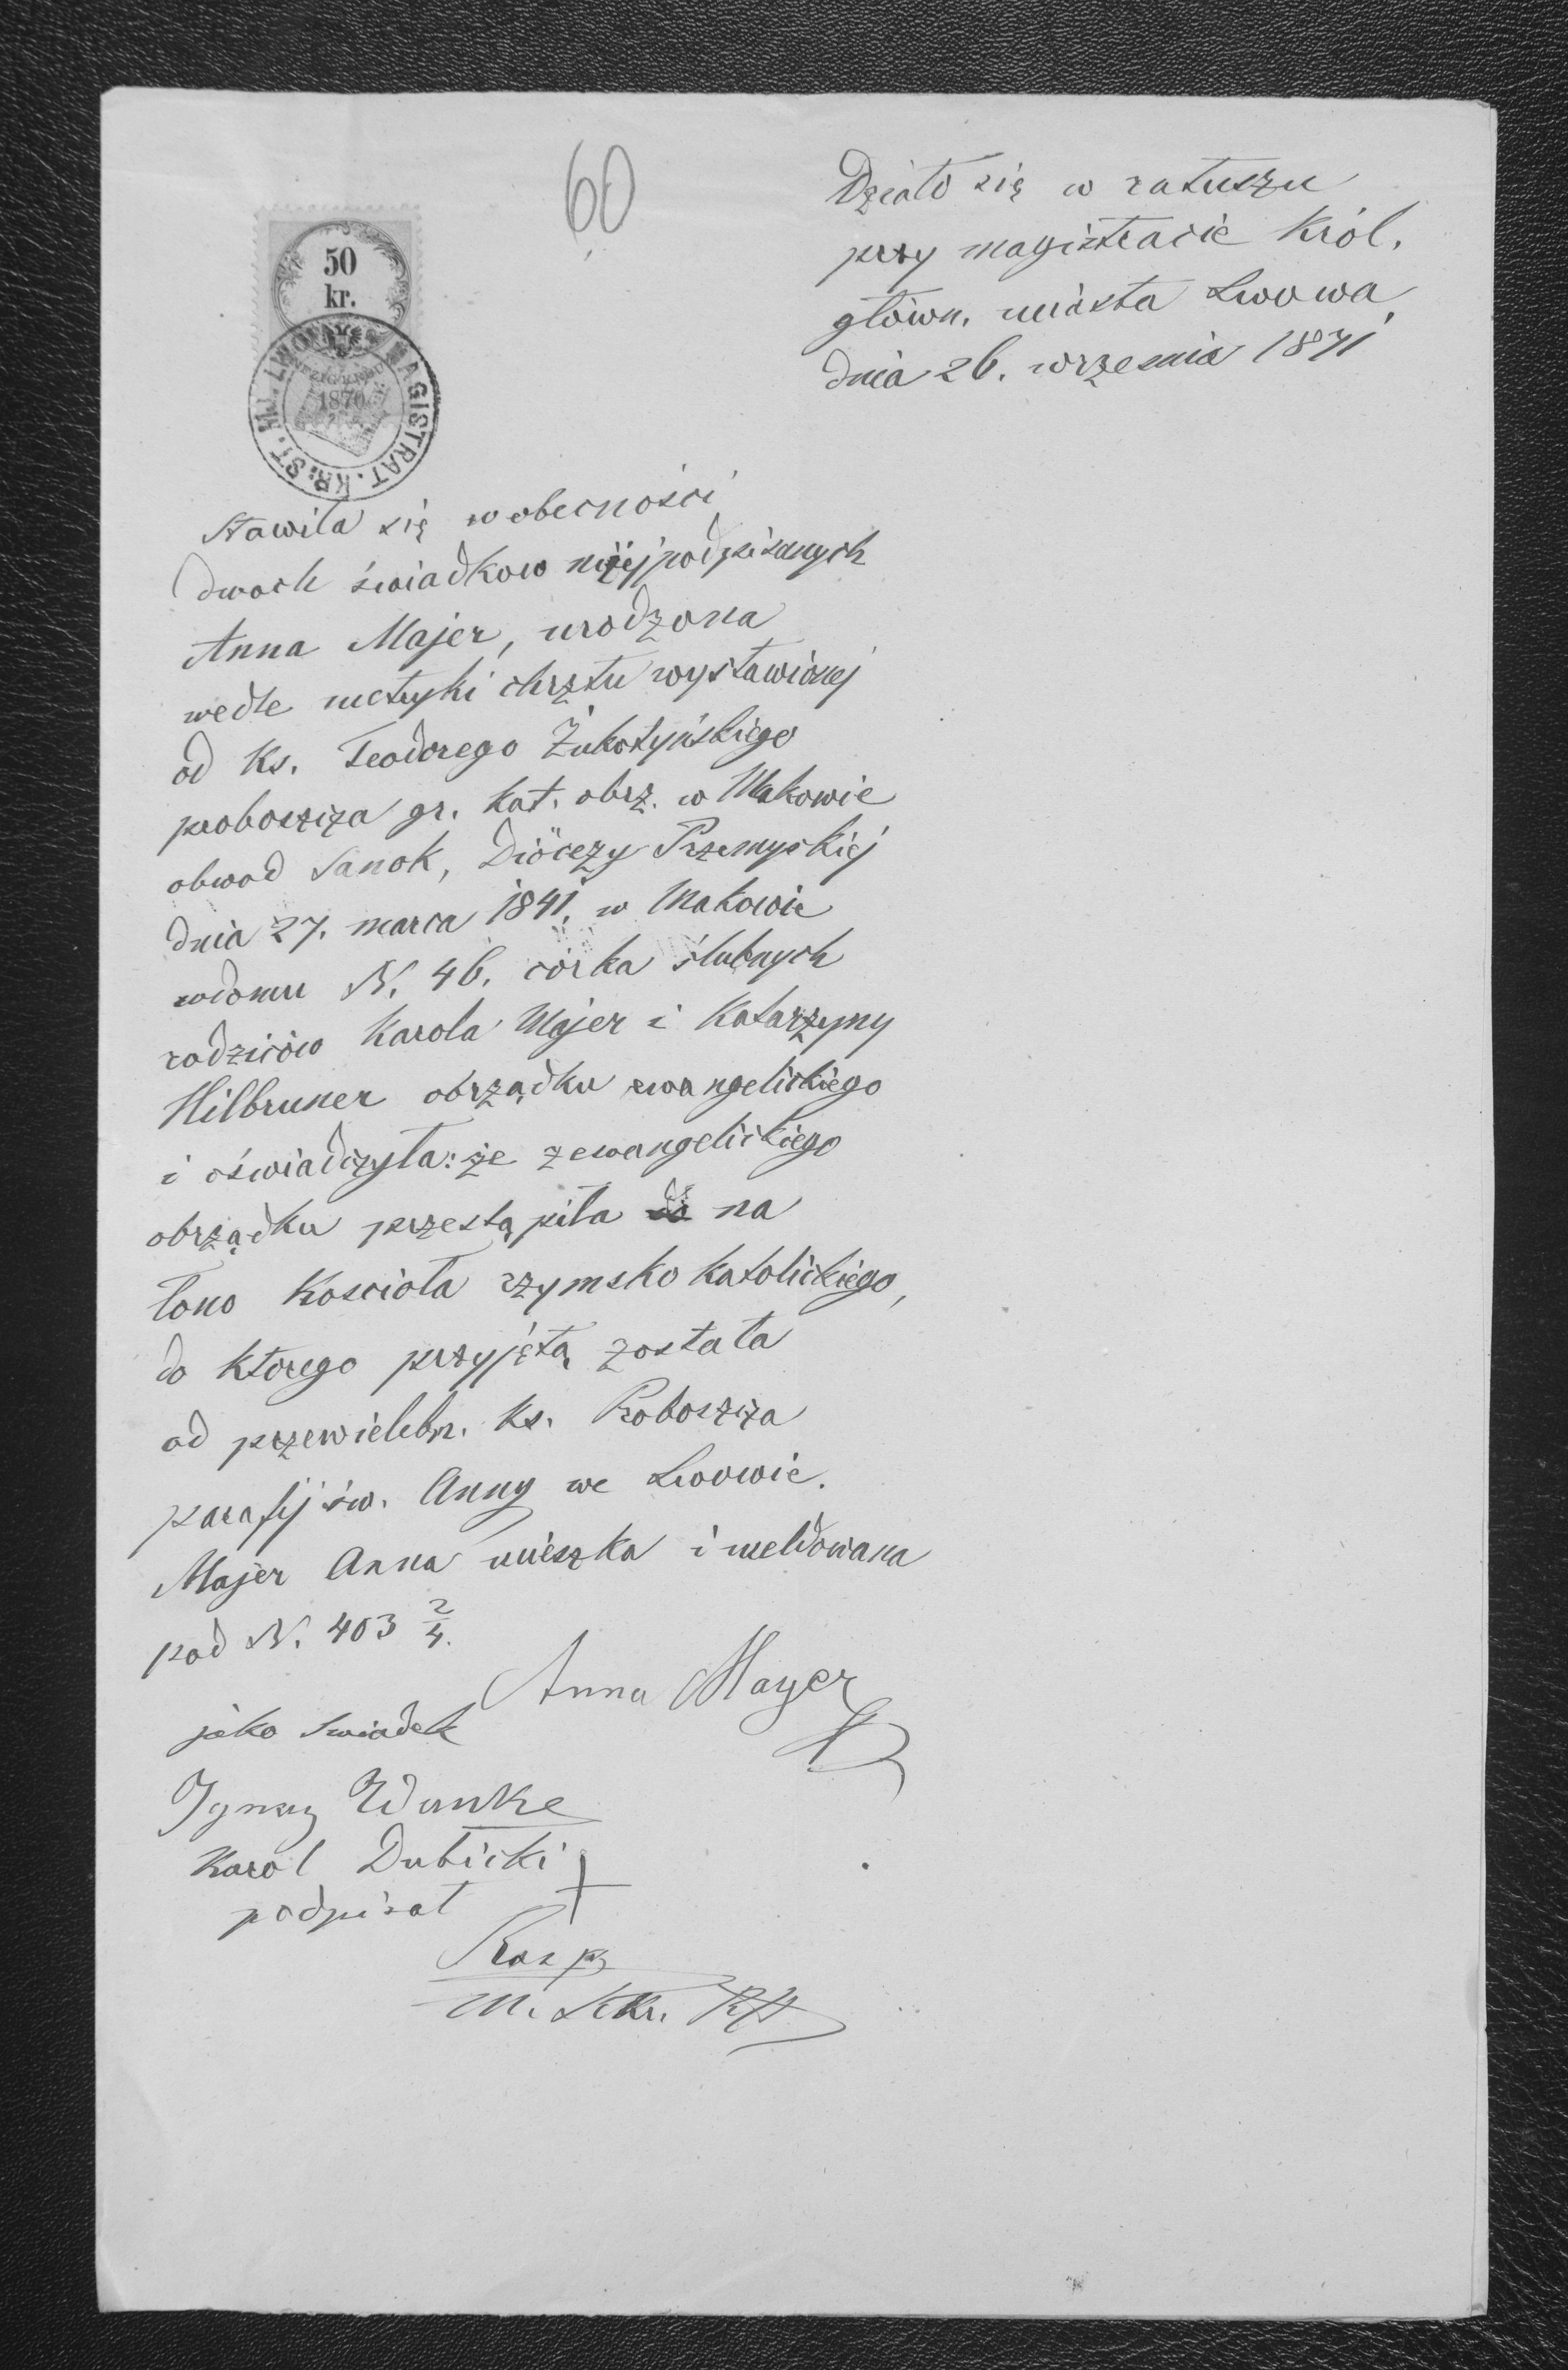 60
Działo się w ratuszu
przy magistracie Król.
główn. miasta Lwowa
dnia 26. wrzesnia 1871
50
kr.
MAGISTRAT. KR: ST. M. LWOWA
1870
Stawiła się w obecności
dwoch świadkow niżej podpisanych
Anna Majer, urodzona
wedle metryki chrztu wystawionej
od Ks. Teodorego Żukotyńskiego
proboszcza gr. kat. obrz. w Makowie
obwod Sanok, Diöcezy Przemyskiej
dnia 27. marca 1841. w Makowie
wdomu N. 46. córka ślubnych
rodziców Karola Majer i Katarzyny
Hilbruner obrządku ewangelickiego
i oświadczyła: że zewangelickiego
obrządku przestąpiła do na
łono Kosciola rzymsko katolickiego,
do ktorego przyjętą została
od przewielebn. ks. Proboszcza
parafij św. Anny we Lwowie.
Majer Anna mieszka i meldowana
pod N. 403 2/4.
Anna Mayer
jako swiadek
Ignacy Wanke
Karol Dubicki +
podpisał
M. Sekr.